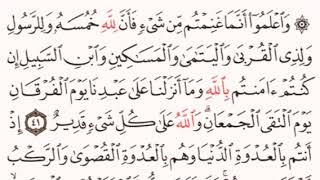 ۞ وَٱعْلَمُوٓا۟ أَنَّمَا غَنِمْتُم مِّن شَىْءٍ فَأَنَّ لِلَّهِ خُمُسَهُۥ وَلِلرَّسُولِ
وَلِذِى ٱلْقُرْبَىٰ وَٱلْيَتَـٰمَىٰ وَٱلْمَسَـٰكِينِ وَٱبْنِ ٱلسَّبِيلِ إِن
كُنتُمْ ءَامَنتُم بِٱللَّهِ وَمَآ أَنزَلْنَا عَلَىٰ عَبْدِنَا يَوْمَ ٱلْفُرْقَانِ
يَوْمَ ٱلْتَقَى ٱلْجَمْعَانِ ۗ وَٱللَّهُ عَلَىٰ كُلِّ شَىْءٍ قَدِيرٌ ٤١ إِذْ
أَنتُم بِٱلْعُدْوَةِ ٱلدُّنْيَا وَهُم بِٱلْعُدْوَةِ ٱلْقُصْوَىٰ وَٱلرَّكْبُ